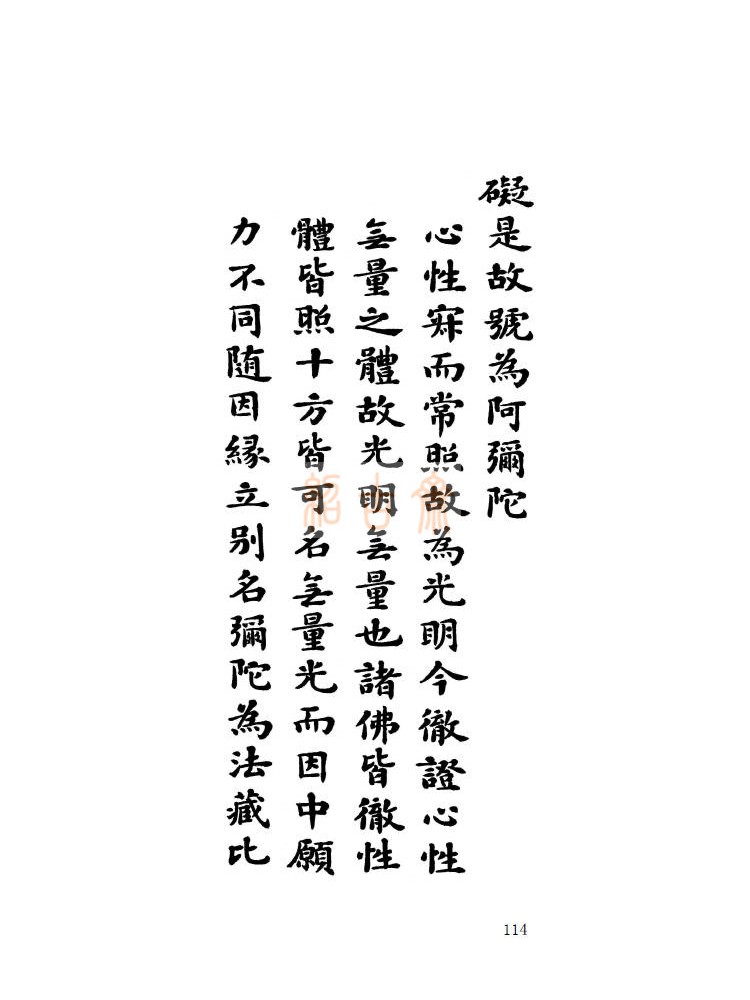 礙是故號為阿彌陀
心性寂而常照故為光明今徹證心性
無量之體故光明無量也諸佛皆徹性
體皆照十方皆可名無量光而因中願
力不同随因緣立别名彌陀為法藏比
114